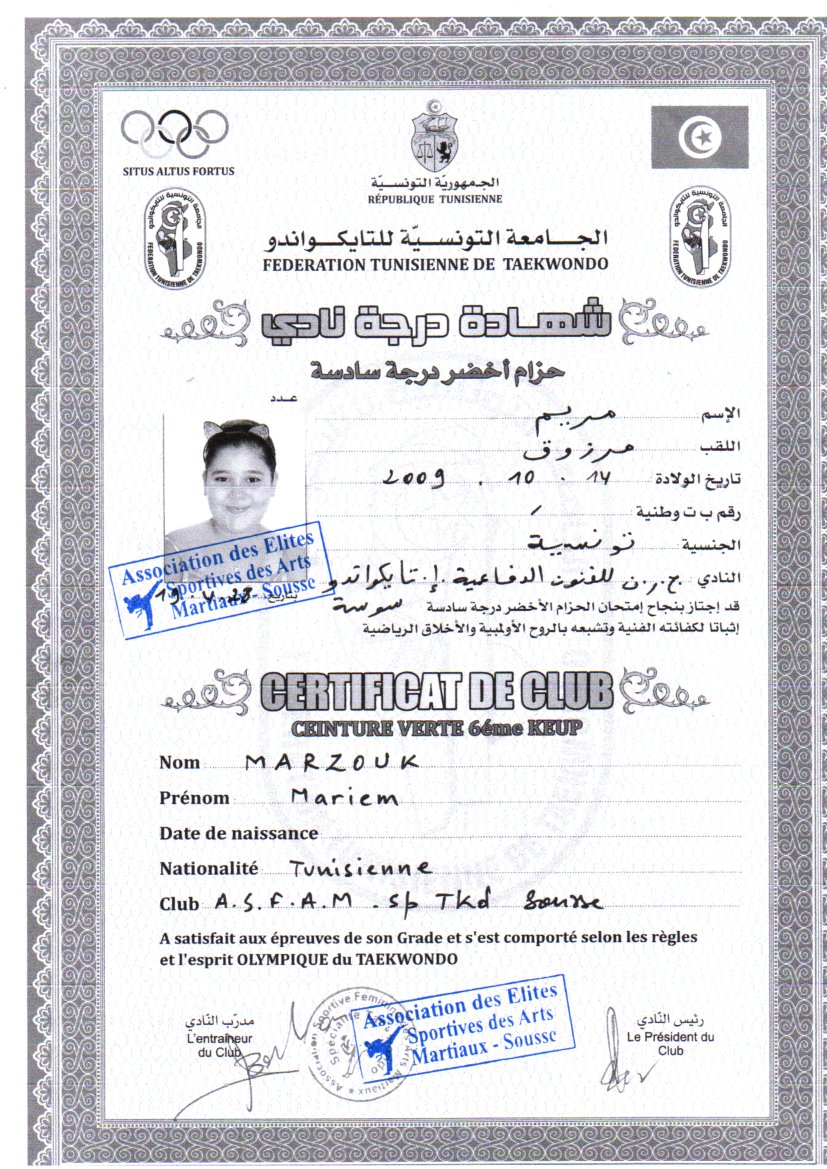 SITUS ALTUS FORTUS
الجمهورية التونسية
RÉPUBLIQUE TUNISIENNE
الجامعة التونسية للتايكواندو
FEDERATION TUNISIENNE DE TAEKWONDO
الجامعة التونسية للتايكواندو
FEDERATION TUNISIENNE DE TAEKWONDO
الجامعة التونسيّة للتايكواندو
FEDERATION TUNISIENNE DE TAEKWONDO
شهادة درجة نادي
حزام أخضر درجة سادسة
عدد
الإسم مريم
اللقب مرزوق
تاريخ الولادة 14 . 10 . 2009
رقم ب ت وطنية
الجنسية تونسية
النادي ج.ر.ن للفنون الدفاعية إ. تايكواندو سوسة
قد إجتاز بنجاح إمتحان الحزام الأخضر درجة سادسة
بتاريخ
إثباتا لكفائته الفنية وتشبعه بالروح الأولمبية والأخلاق الرياضية
Association des Elites
Sportives des Arts
Martiaux - Sousse
CERTIFICAT DE CLUB
CEINTURE VERTE 6éme KEUP
Nom MARZOUK
Prénom Mariem
Date de naissance
Nationalité Tunisienne
Club A.S.F.A.M. sp Tkd Sousse
A satisfait aux épreuves de son Grade et s'est comporté selon les règles
et l'esprit OLYMPIQUE du TAEKWONDO
مدرّب النّادي
L'entraîneur
du Club
Association des Elites
Sportives des Arts
Martiaux - Sousse
رئيس النّادي
Le Président du
Club